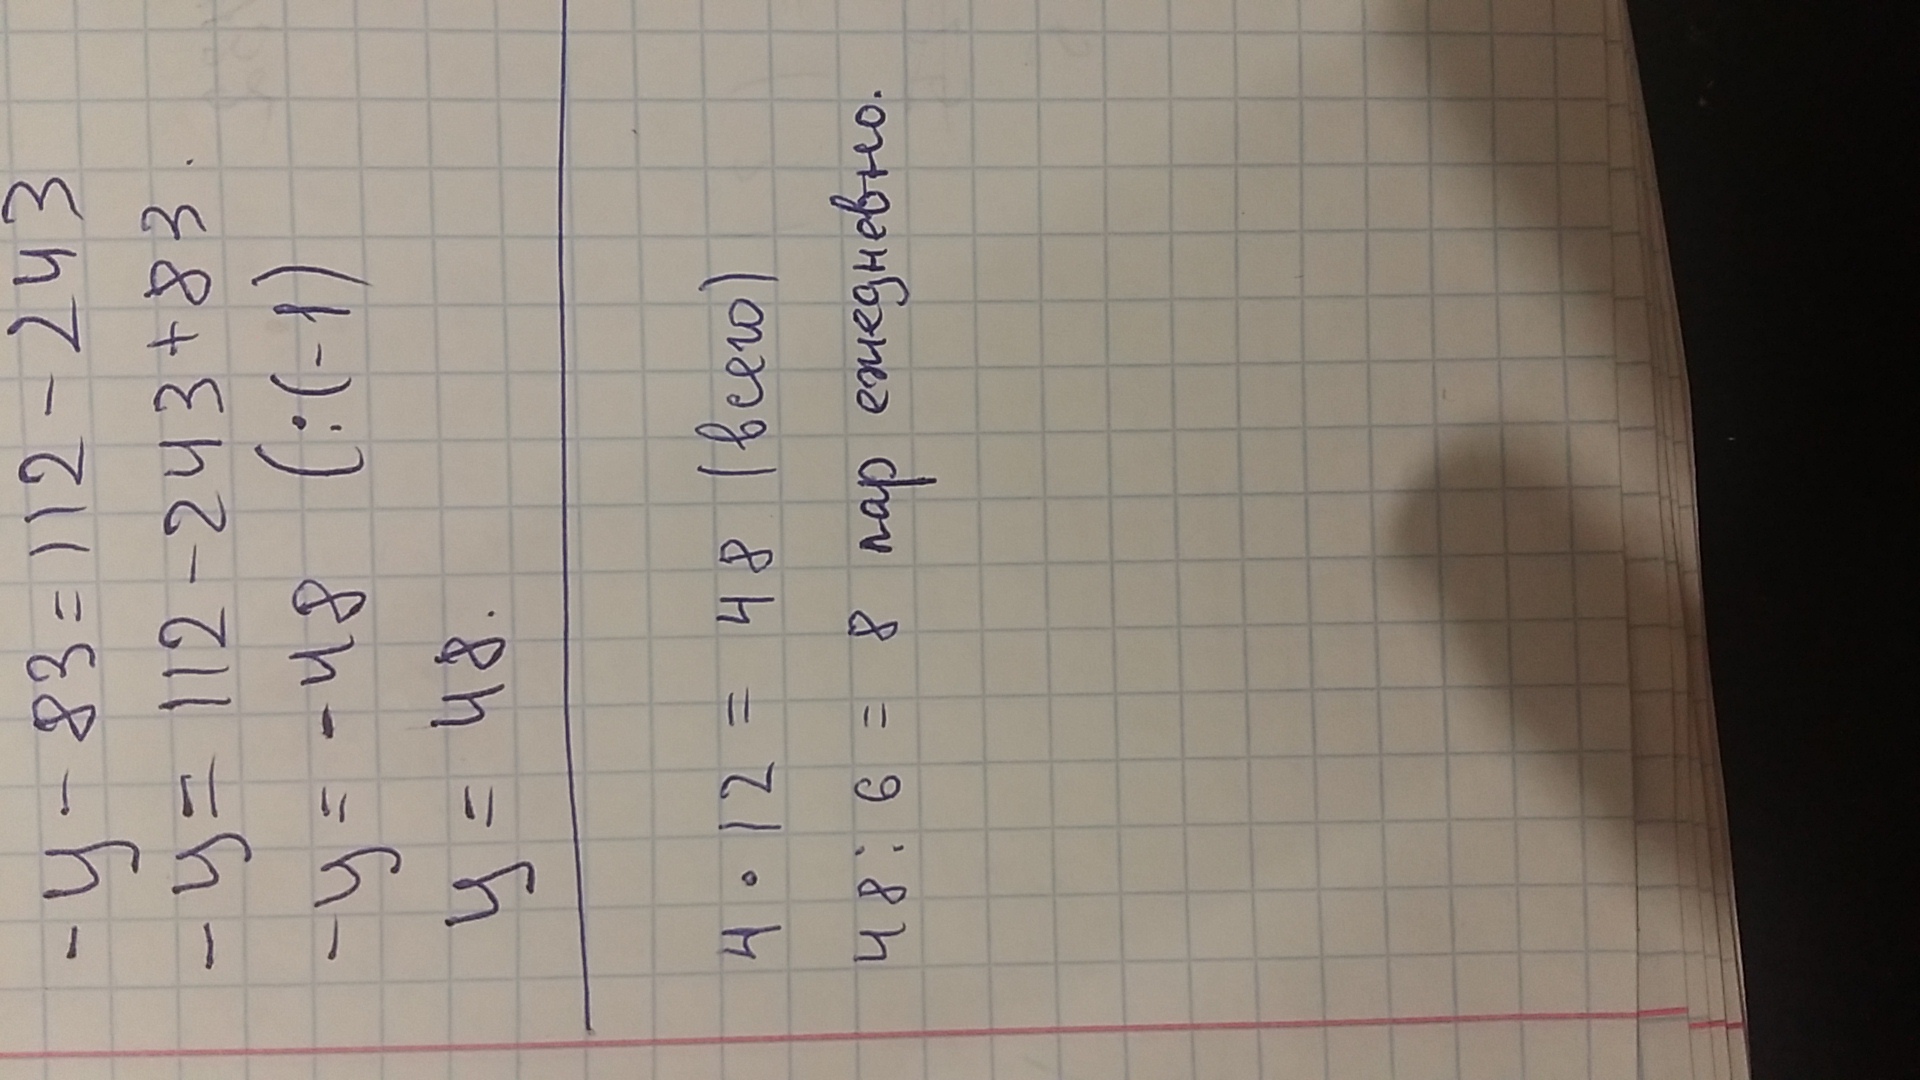 -y - 83 = 112 - 243
-y = 112 - 243 + 83.
-y = -48 (:(-1)
y = 48.
4 • 12 = 48 (всего)
48 : 6 = 8 пар ежедневно.